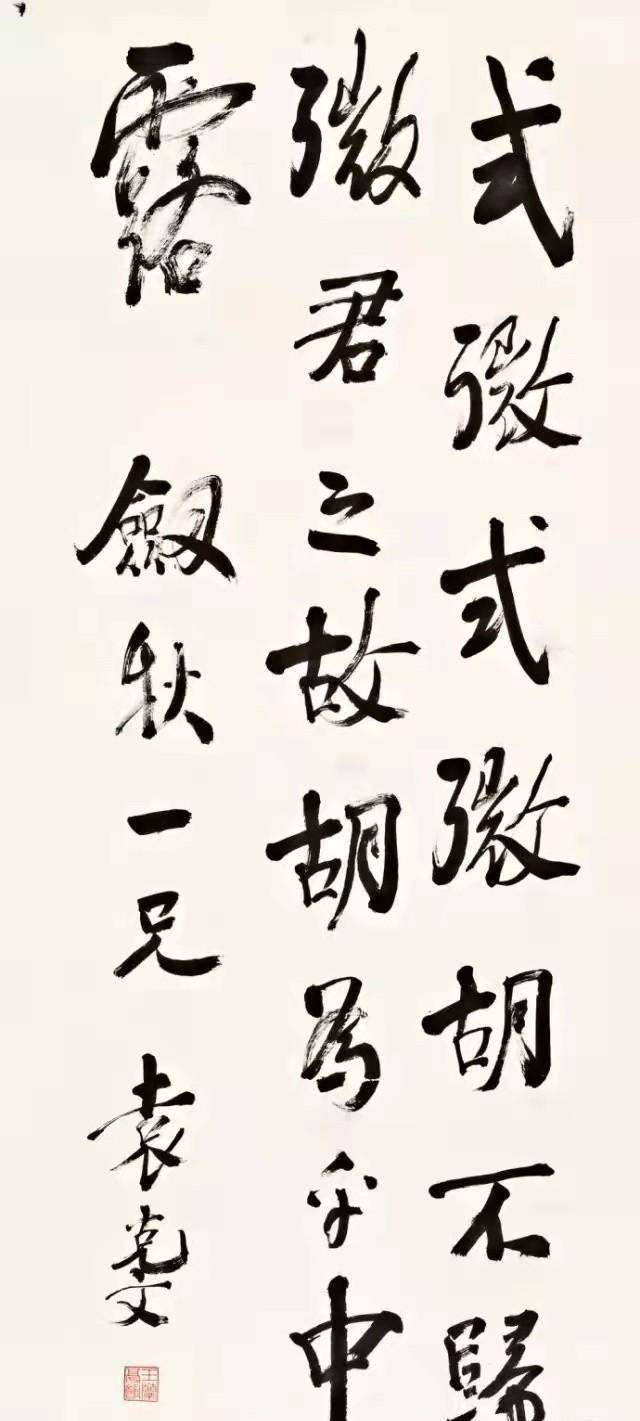 式微式微胡不歸
微君之故胡為乎中
露 劍秋一兄 袁克文